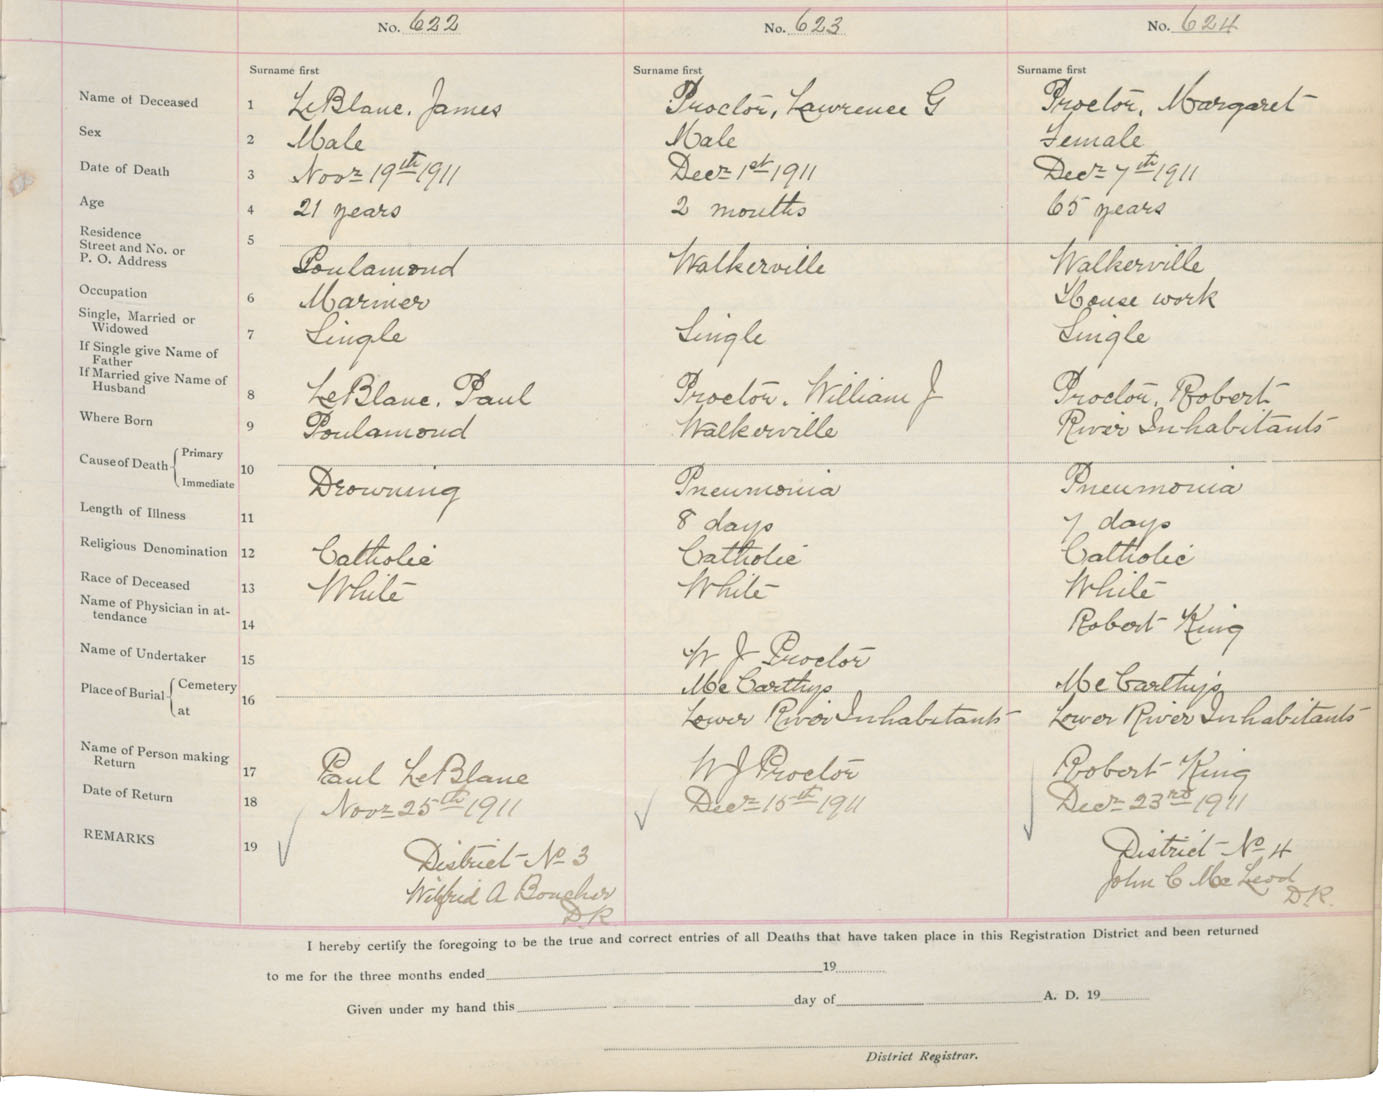 No. 622 No. 623 No. 624
Surname first Surname first Surname first
Name of Deceased 1 LeBlanc, James Proctor, Lawrence G Proctor, Margaret
Sex 2 Male Male Female
Date of Death 3 Novr 19th 1911 Decr 1st 1911 Decr 7th 1911
Age 4 21 years 2 months 65 years
Residence
Street and No. or
P. O. Address 5 Poulamond Walkerville Walkerville
Occupation 6 Mariner House work
Single, Married or
Widowed 7 Single Single Single
If Single give Name of
Father
If Married give Name of
Husband 8 LeBlanc, Paul Proctor, William J Proctor, Robert
Where Born 9 Poulamond Walkerville River Inhabitants
Cause of Death Primary
Immediate 10 Drowning Pneumonia Pneumonia
Length of Illness 11 8 days 7 days
Religious Denomination 12 Catholic Catholic Catholic
Race of Deceased 13 White White White
Name of Physician in at-
tendance 14 Robert King
Name of Undertaker 15 W J Proctor
Place of Burial Cemetery McCarthys McCarthy's
at 16 Lower River Inhabitants Lower River Inhabitants
Name of Person making
Return 17 Paul LeBlanc W J Proctor Robert King
Date of Return 18 Novr 25th 1911 Decr 15th 1911 Decr 23rd 1911
REMARKS 19 District No 3 District No 4
Wilfrid A Boucher John C McLeod
D R D R.
I hereby certify the foregoing to be the true and correct entries of all Deaths that have taken place in this Registration District and been returned
to me for the three months ended 19
Given under my hand this day of A. D. 19
District Registrar.